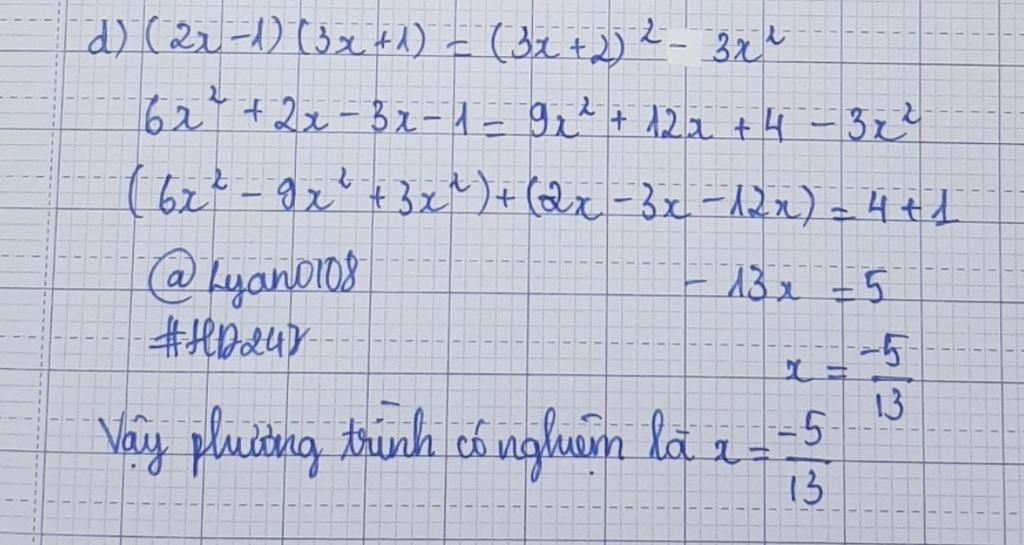 d) (2x-1)(3x+1) = (3x+2)² - 3x²
6x² + 2x - 3x - 1 = 9x² + 12x + 4 - 3x²
(6x² - 9x² + 3x²) + (2x - 3x - 12x) = 4 + 1
@Lyan0108 - 13x = 5
#HD247 x = -5/13
Vậy phương trình có nghiệm là x = -5/13